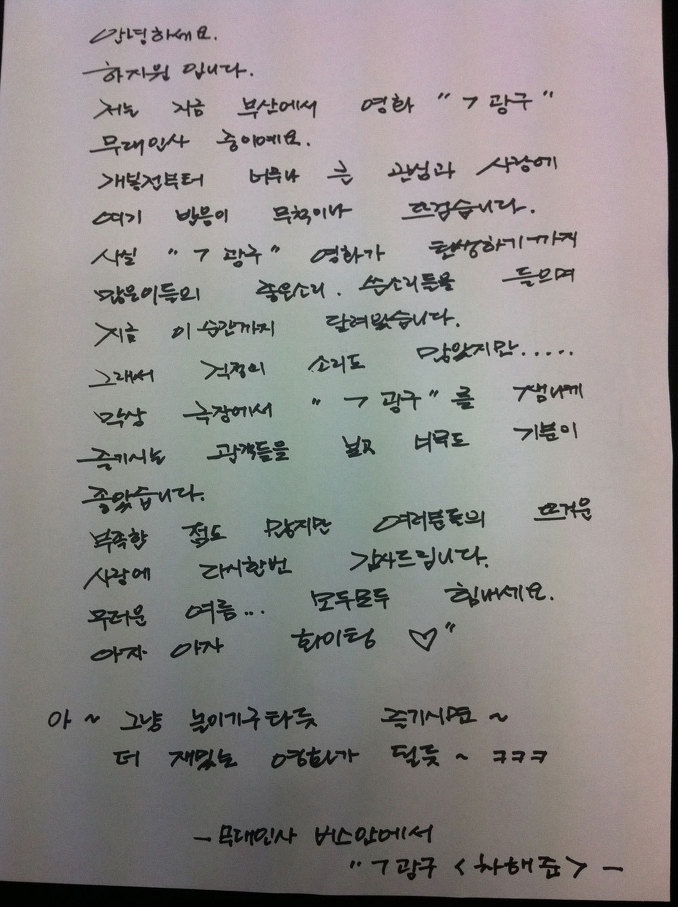 안녕하세요.
하지원 입니다.
저는 지금 부산에서 영화 "7광구"
무대인사 중이에요.
개봉전부터 너무나 큰 관심과 사랑에
여기 반응이 무척이나 뜨겁습니다.
사실 "7광구" 영화가 탄생하기까지
많은이들의 좋은소리. 쓴소리들을 들으며
지금 이 순간까지 달려왔습니다.
그래서 걱정의 소리도 많았지만.....
막상 극장에서 "7광구"를 잼나게
즐기시는 관객들을 보고 너무도 기분이
좋았습니다.
부족한 점도 많지만 여러분들의 뜨거운
사랑에 다시한번 감사드립니다.
무더운 여름... 모두모두 힘내세요.
아자 아자 화이팅 ♡"
아~ 그냥 놀이기구타듯 즐기시면~
더 재밌는 영화가 될듯~ ㅋㅋㅋ
- 무대인사 버스안에서
"7광구 <차해준> -